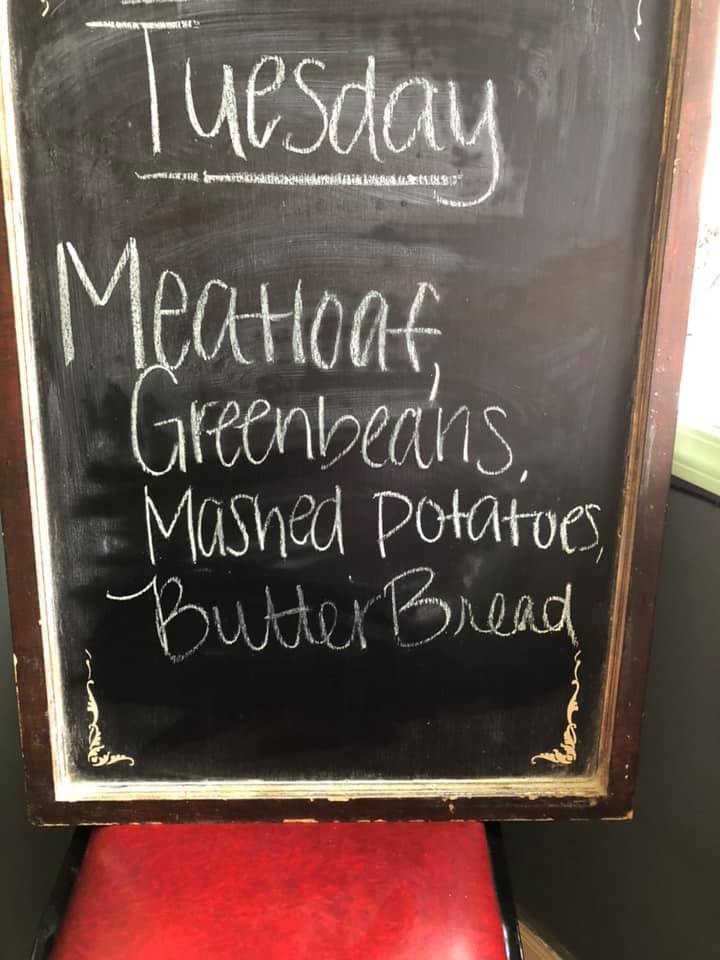 Tuesday
Meatloaf,
Greenbeans,
Mashed Potatoes,
Butter Bread